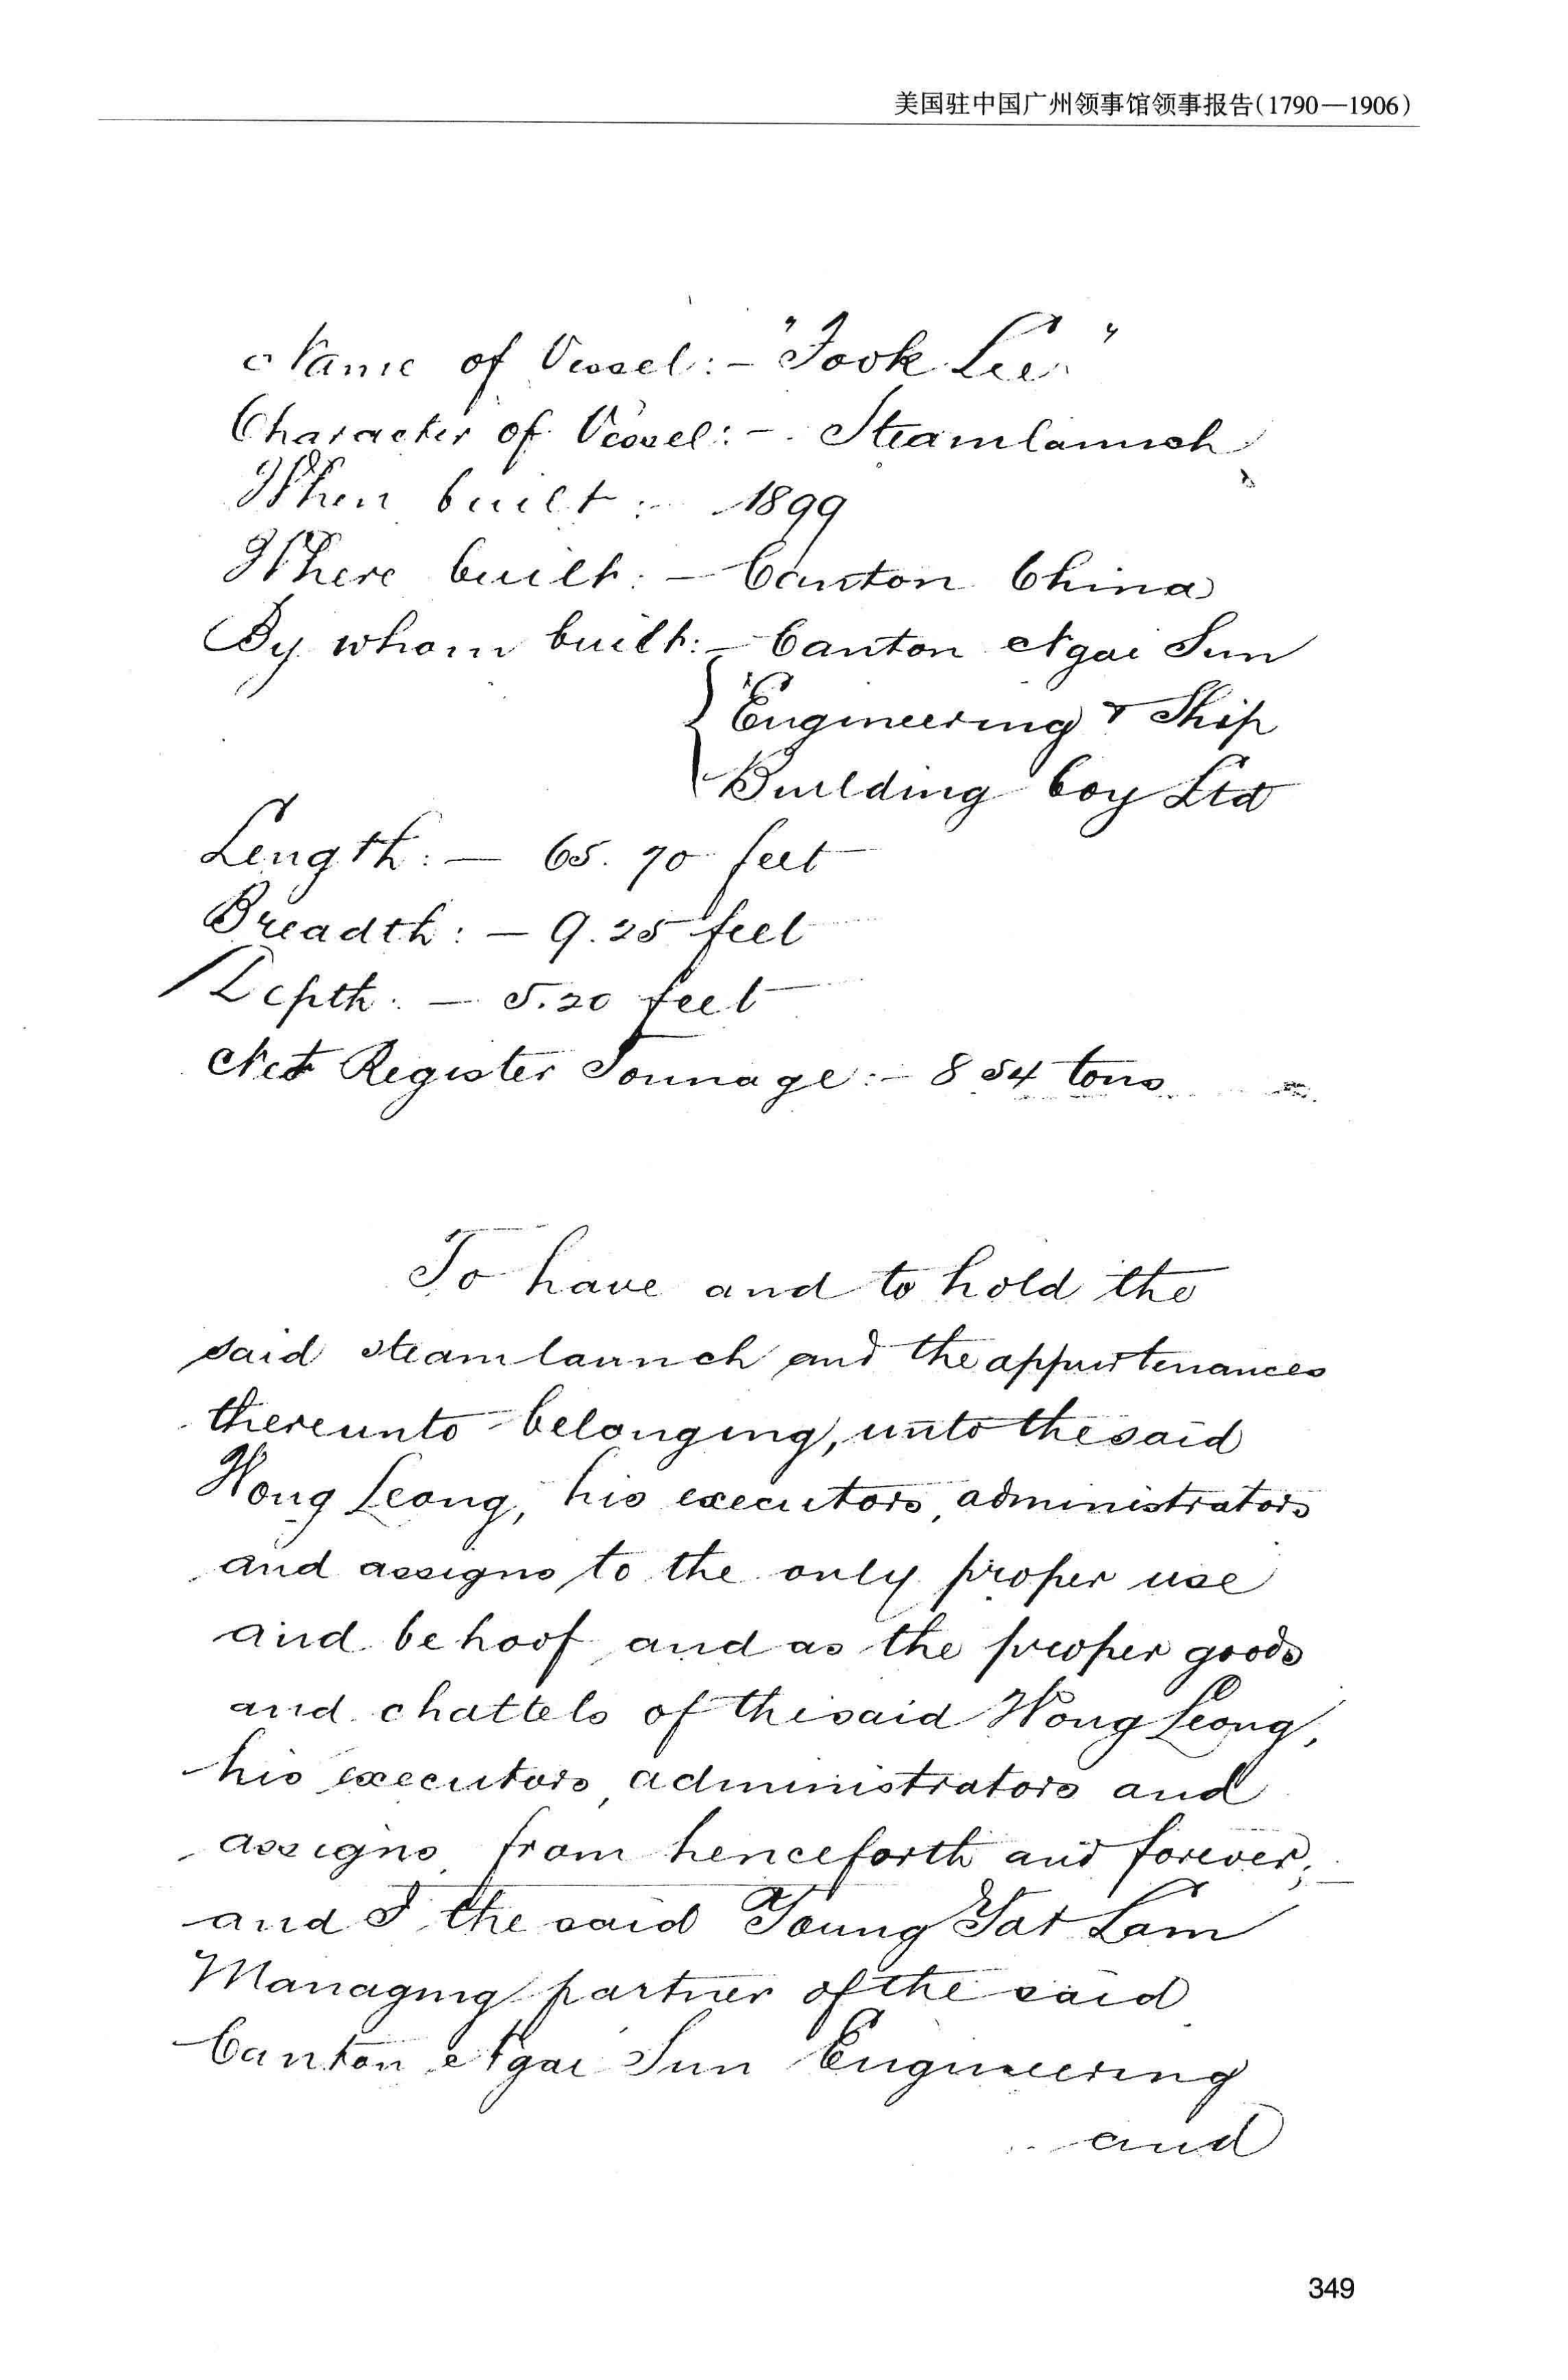 美国驻中国广州领事馆领事报告(1790—1906)
Name of Vessel:- "Fook Lee"
Character of Vessel:- Steamlaunch
When built:- 1899
Where built:- Canton China
By whom built:- Canton Ngai Sun
Engineering & Ship
Building Coy Ltd
Length:- 65.70 feet
Breadth:- 9.25 feet
Depth:- 5.20 feet
Net Register Tonnage:- 8 54 tons
To have and to hold the
said steamlaunch and the appurtenances
thereunto belonging, unto the said
Wong Leong, his executors, administrators
and assigns to the only proper use
and behoof and as the proper goods
and chattels of the said Wong Leong,
his executors, administrators and
assigns, from henceforth and forever;
and I the said Young Yat Lam
Managing partner of the said
Canton Ngai Sun Engineering
and
349